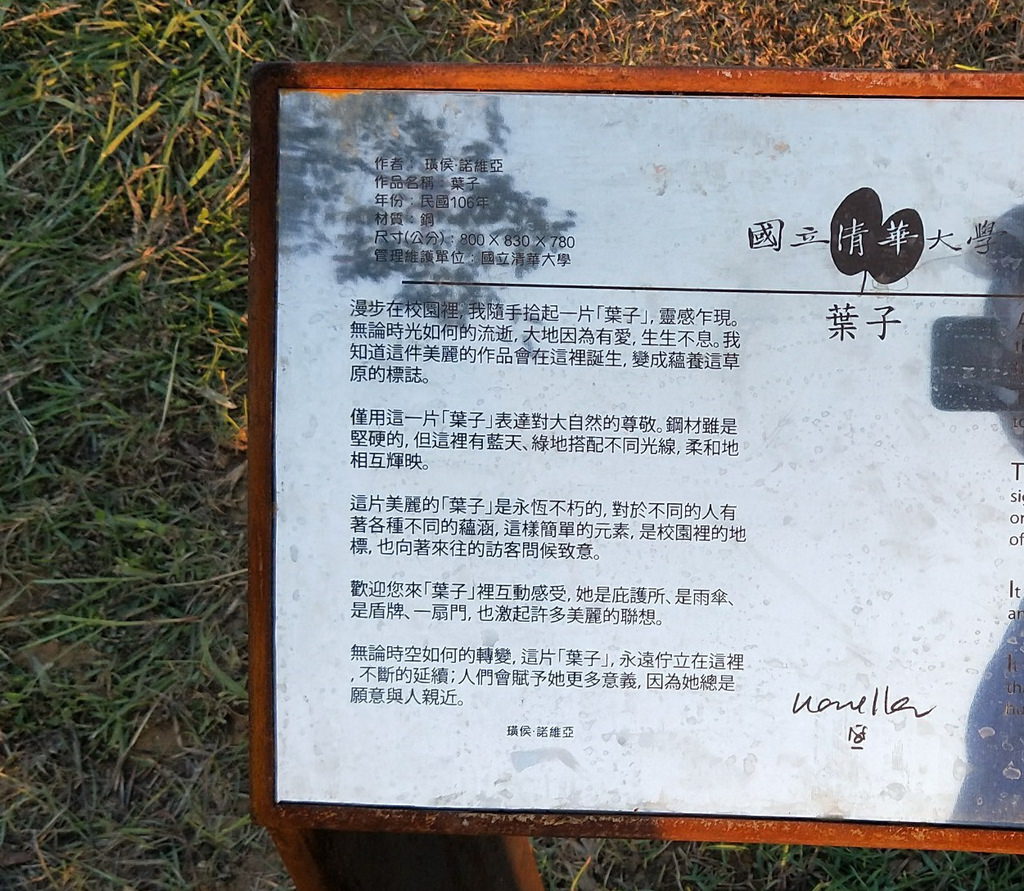 作者：璜侯·諾維亞
作品名稱：葉子
年份：民國106年
材質：鋼
尺寸(公分)：800 X 830 X 780
管理維護單位：國立清華大學
國立清華大學
葉子
漫步在校園裡, 我隨手拾起一片「葉子」, 靈感乍現。
無論時光如何的流逝, 大地因為有愛, 生生不息。我
知道這件美麗的作品會在這裡誕生, 變成蘊養這草
原的標誌。
僅用這一片「葉子」表達對大自然的尊敬。鋼材雖是
堅硬的, 但這裡有藍天、綠地搭配不同光線, 柔和地
相互輝映。
這片美麗的「葉子」是永恆不朽的, 對於不同的人有
著各種不同的蘊涵, 這樣簡單的元素, 是校園裡的地
標, 也向著來往的訪客問候致意。
歡迎您來「葉子」裡互動感受, 她是庇護所、是雨傘、
是盾牌、一扇門, 也激起許多美麗的聯想。
無論時空如何的轉變, 這片「葉子」, 永遠佇立在這裡
, 不斷的延續；人們會賦予她更多意義, 因為她總是
願意與人親近。
璜侯·諾維亞
T
si
of
It
an